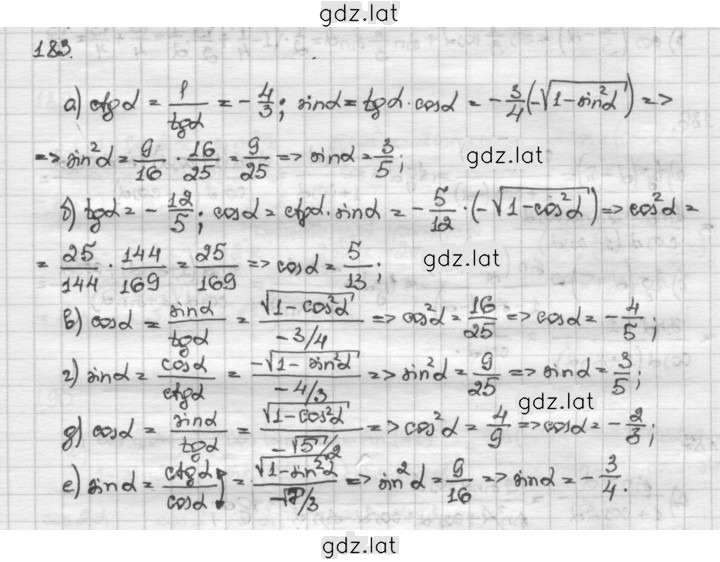 gdz.lat
183.
а) ctgα = 1/tgα = -4/3; sinα = tgα·cosα = -3/4(-√(1-sin²α)) =>
=> sin²α = 9/16 · 16/25 = 9/25 => sinα = 3/5;
gdz.lat
б) tgα = -12/5; cosα = ctgα·sinα = -5/12·(-√(1-cos²α)) => cos²α =
= 25/144 · 144/169 = 25/169 => cosα = 5/13;
gdz.lat
в) cosα = sinα/tgα = √(1-cos²α)/(-3/4) => cos²α = 16/25 => cosα = -4/5;
г) sinα = cosα/ctgα = -√(1-sin²α)/(-4/3) => sin²α = 9/25 => sinα = 3/5;
gdz.lat
д) cosα = sinα/tgα = √(1-cos²α)/(-√5/2) => cos²α = 4/9 => cosα = -2/3;
е) sinα = ctgα/cosα = √(1-sin²α)/(-√7/3) => sin²α = 9/16 => sinα = -3/4.
gdz.lat